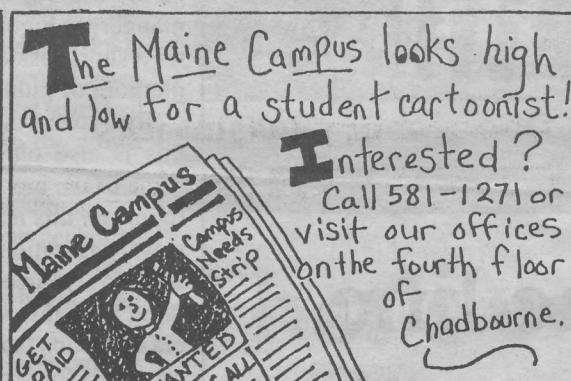 The Maine Campus looks high
and low for a student cartoonist!
Interested?
Call 581-1271 or
visit our offices
on the fourth floor
of
Chadbourne.
Maine Campus
Campus
Needs
Strip
GET
PAID
WANTED
CALL